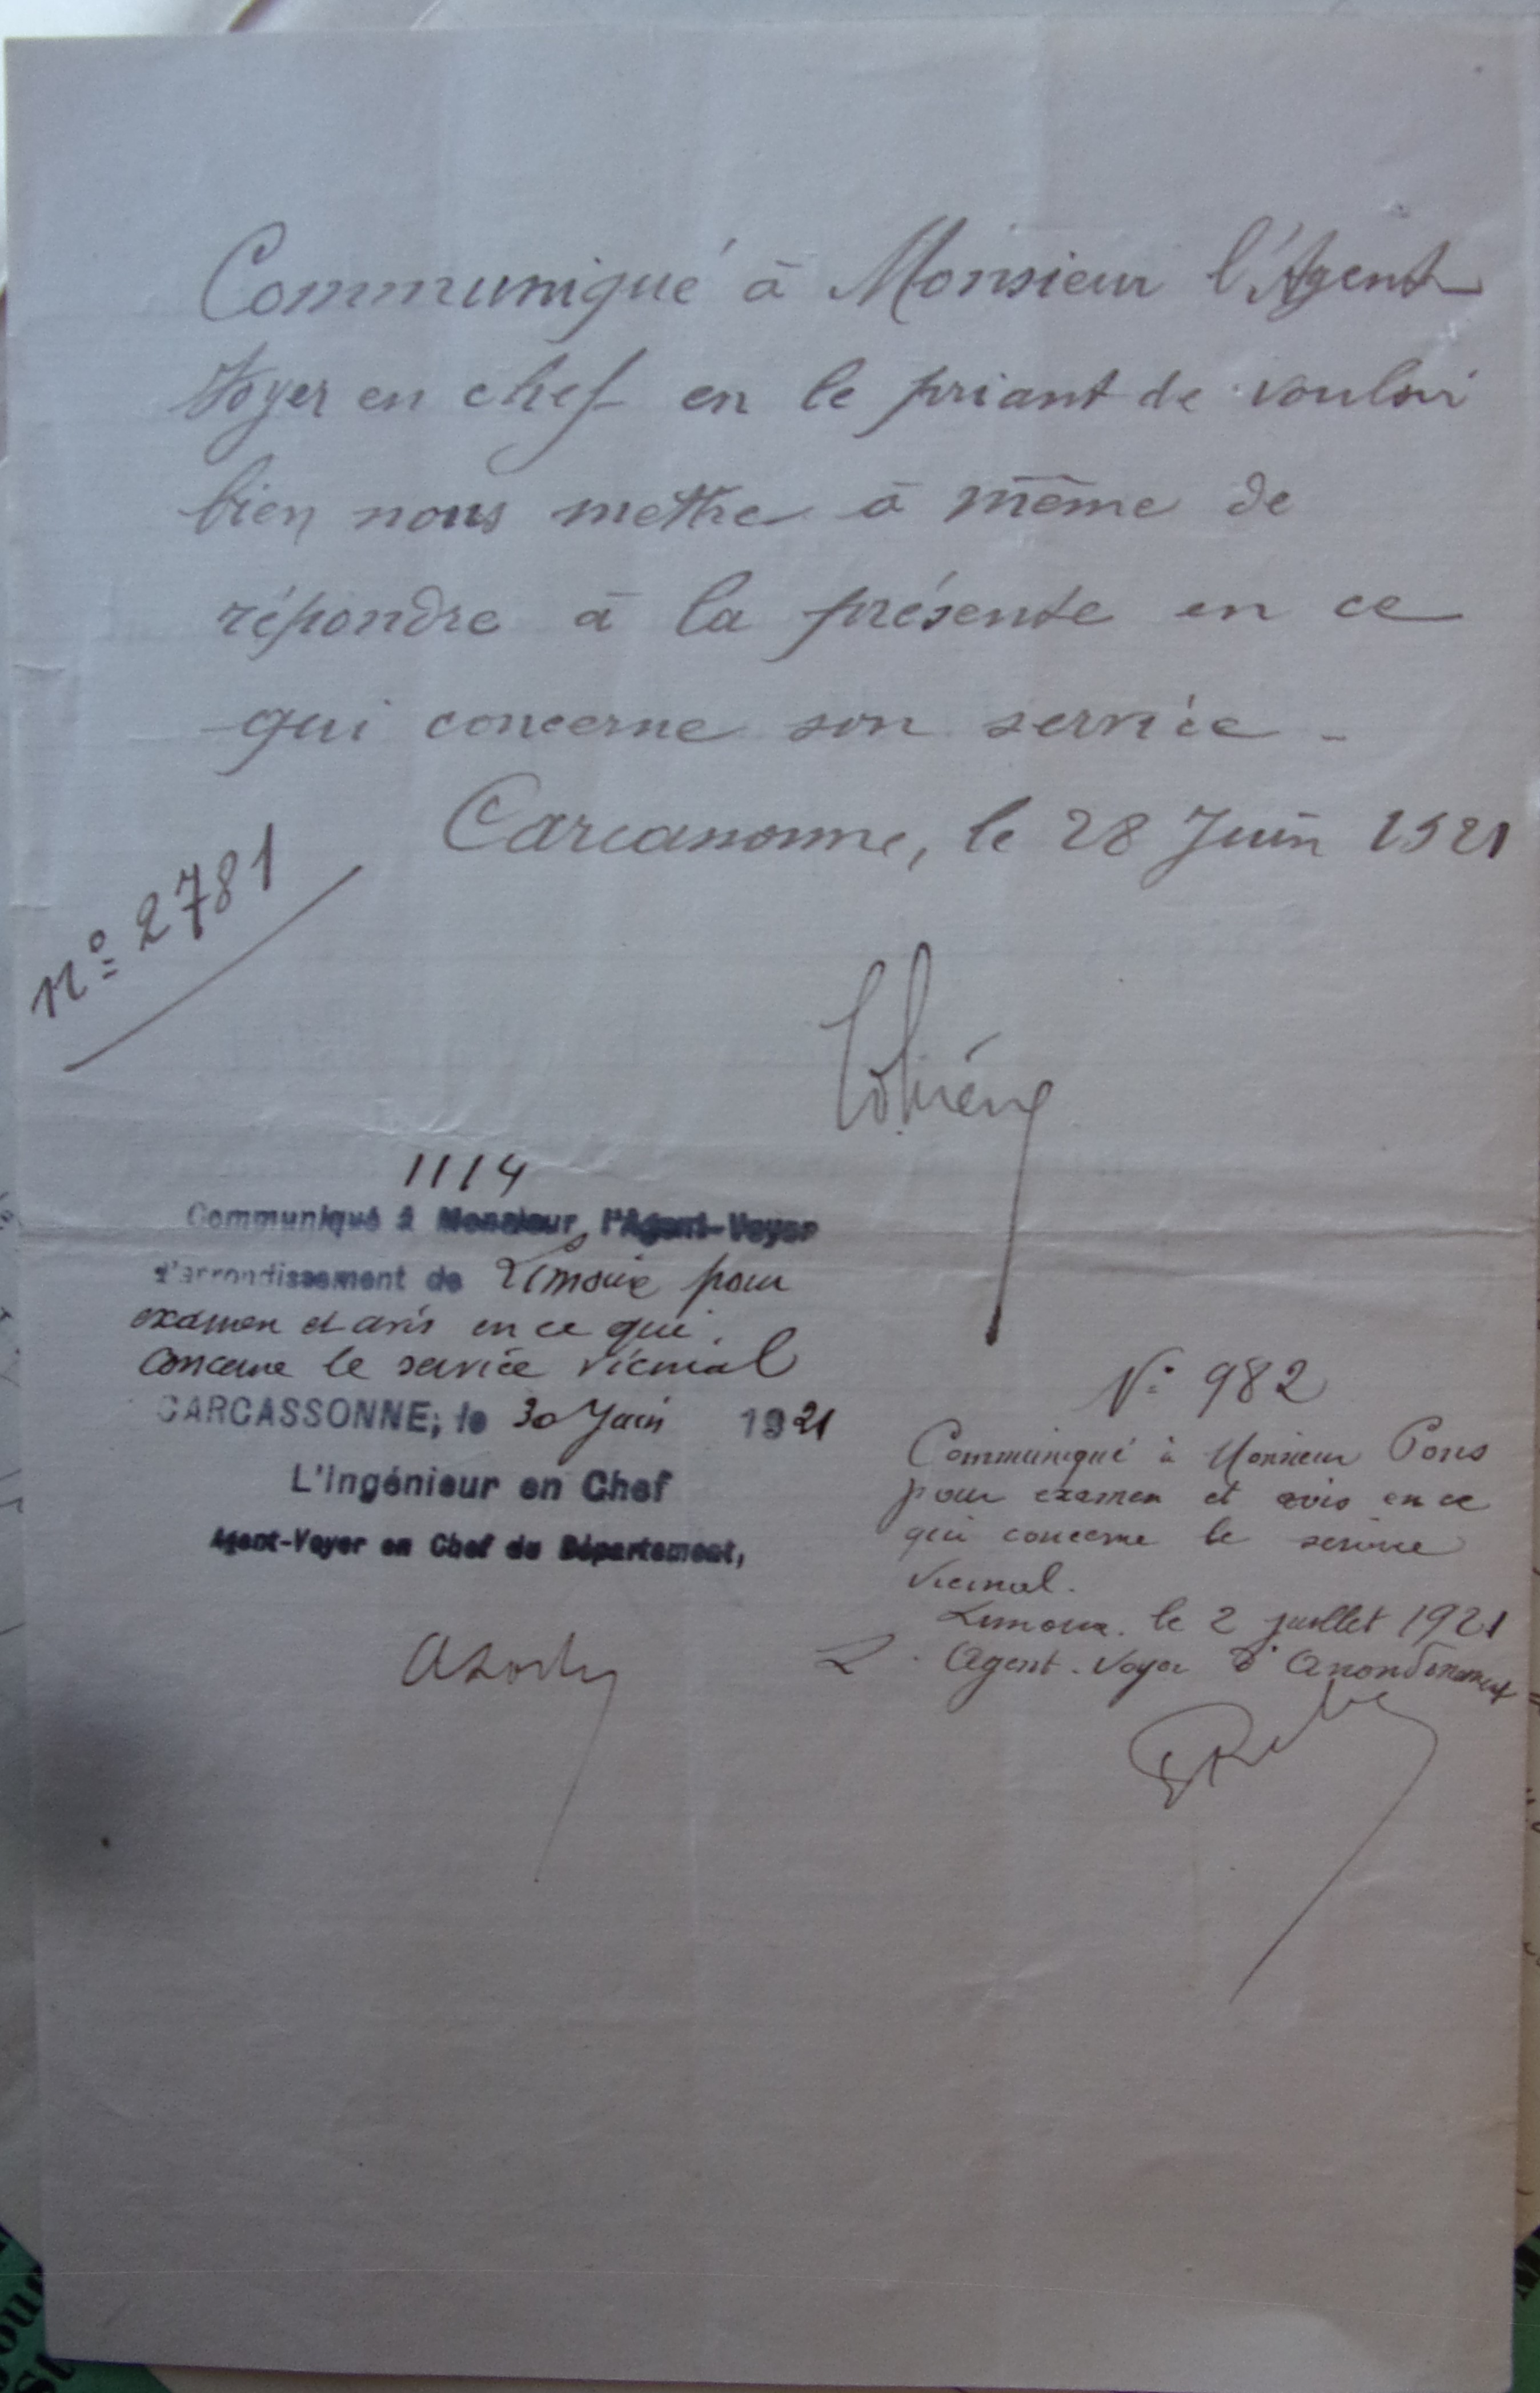 Communiqué à Monsieur l'Agent-
Voyer en chef en le priant de vouloir
bien nous mettre à même de
répondre à la présente en ce
qui concerne son service -
Carcassonne, le 28 Juin 1921
n° 2781
1114
Communiqué à Monsieur l'Agent-Voyer
d'arrondissement de Limoux pour
examen et avis en ce qui
concerne le service vicinal
CARCASSONNE, le 30 Juin 1921
L'Ingénieur en Chef
Agent-Voyer en Chef du Département,
N° 982
Communiqué à Monsieur Pons
pour examen et avis en ce
qui concerne le service
vicinal.
Limoux, le 2 juillet 1921
L'Agent-Voyer d'arrondissement